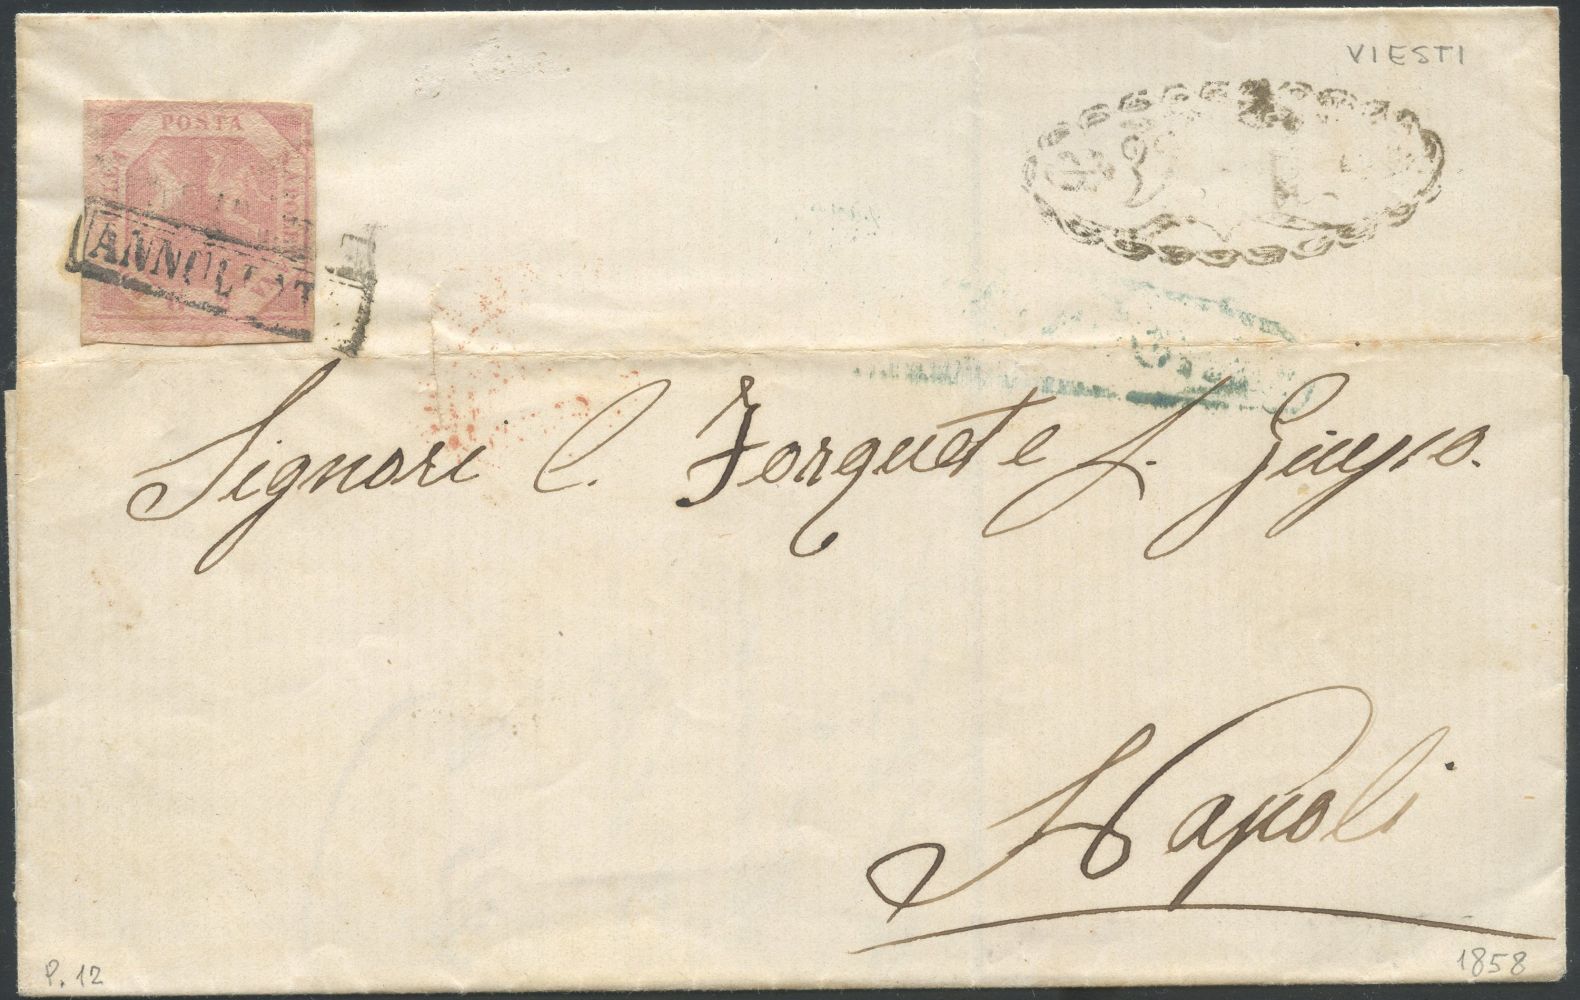 VIESTI
POSTA
ANNULLATO
Signori C. Forquet e L. Giusso.
Napoli
P. 12
1858